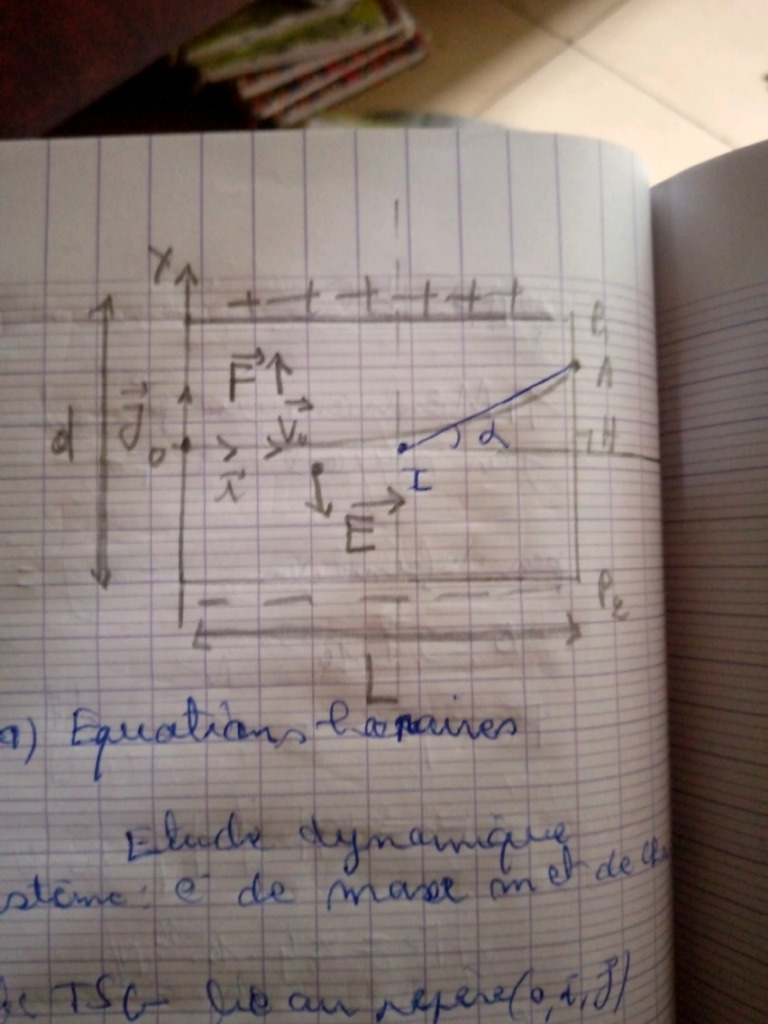 Y
+ + + + + +
P₁
F⃗
A
V⃗₀
d
j⃗
o
α
H
i⃗
I
E⃗
P₂
L
a) Equations horaires
Etude dynamique
stème: e⁻ de masse m et de
TSG lié au repère (o, i⃗, j⃗)